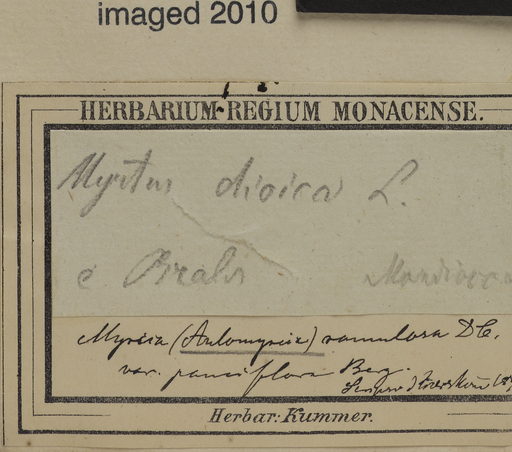 imaged 2010
HERBARIUM REGIUM MONACENSE.
Myrtus dioica L.
e Brasilis
Myrcia (Aulomyrcia) ramulosa DC.
var. pauciflora Berg.
Herbar: Kummer.